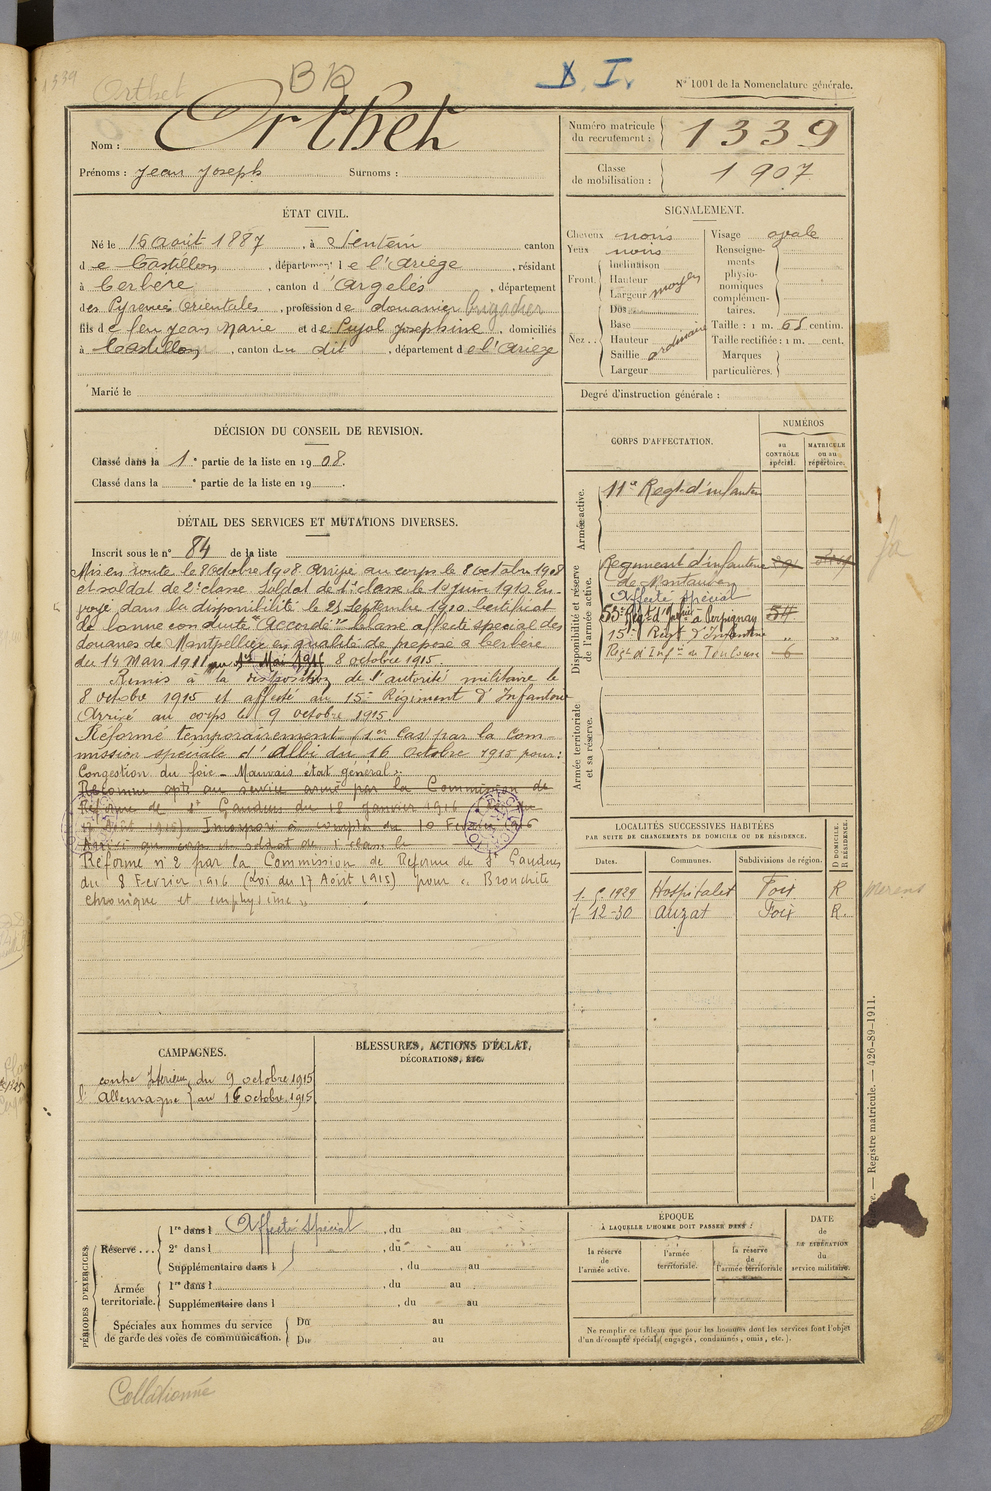 1339
Orthet
BR
D. I.
N° 1001 de la Nomenclature générale.
Nom : Orthet
Prénoms : Jean Joseph Surnoms :
Numéro matricule du recrutement : 1339
Classe de mobilisation : 1907
ÉTAT CIVIL.
Né le 16 Août 1887, à Sentein canton
de Castillon, département de l'Ariège, résidant
à Cerbère, canton d'Argelès, département
des Pyrénées Orientales, profession de douanier brigadier
fils de feu Jean Marie et de Pujol Josephine, domiciliés
à Castillon, canton du dit, département de l'Ariège
Marié le
SIGNALEMENT.
Cheveux noirs
Yeux noirs
Front. Inclinaison
Hauteur
Largeur moyen
Nez. Dos
Base
Hauteur
Saillie ordinaire
Largeur
Visage ovale
Renseignements physionomiques complémentaires.
Taille : 1 m. 65 centim.
Taille rectifiée : 1 m. cent.
Marques particulières.
Degré d'instruction générale :
DÉCISION DU CONSEIL DE REVISION.
Classé dans la 1e partie de la liste en 1908.
Classé dans la e partie de la liste en 19 .
DÉTAIL DES SERVICES ET MUTATIONS DIVERSES.
Inscrit sous le n° 84 de la liste
Mis en route le 8 octobre 1908. Arrivé au corps le 8 octobre 1908
et soldat de 2e classe. Soldat de 1e classe le 10 juin 1910. En-
voyé dans la disponibilité le 25 Septembre 1910. Certificat
de bonne conduite "Accordé". Classé affecté spécial des
douanes de Montpellier en qualité de préposé à Cerbère
du 14 Mars 1911 au 1er Mai 1916 8 octobre 1915.
Remis à la disposition de l'autorité militaire le
8 octobre 1915 et affecté au 15e Régiment d'Infanterie
Arrivé au corps le 9 octobre 1915.
Réformé temporairement (1er Cas) par la Com-
mission spéciale d'Albi du 16 octobre 1915 pour :
Congestion du foie - Mauvais état général.
Reconnu apte au service armé par la Commission de
Réforme de St Gaudens du 18 Janvier 1916
17 Août 1915). Incorporé à compter du 10 Février 1916
Arrivé au corps et soldat de 1e classe le
Réformé n° 2 par la Commission de Réforme de St Gaudens
du 8 Février 1916 (Loi du 17 Août 1915) pour "Bronchite
chronique et emphysème"
CORPS D'AFFECTATION.
NUMÉROS
au CONTRÔLE spécial.
MATRICULE ou au répertoire.
Armée active.
11e Regt d'infanterie
Disponibilité et réserve de l'armée active.
Régiment d'infanterie
de Montauban
Affecté spécial
53e Régt d'Infie à Perpignan 511
15e Régt d'Infanterie " "
Regt d'Infie de Toulouse 6
Armée territoriale et sa réserve.
LOCALITÉS SUCCESSIVES HABITÉES
PAR SUITE DE CHANGEMENTS DE DOMICILE OU DE RÉSIDENCE.
Dates. Communes. Subdivisions de région. D DOMICILE. R RÉSIDENCE.
1. 9. 1929 Hospitalet Foix R Merens
7 12-30 Auzat Foix R.
CAMPAGNES.
contre Intérieur, du 9 octobre 1915
l'Allemagne au 16 octobre 1915
BLESSURES, ACTIONS D'ÉCLAT,
DÉCORATIONS, ETC.
PÉRIODES D'EXERCICES.
Réserve... 1re dans l Affecté Spécial, du au
2e dans l , du au
Supplémentaire dans l , du au
Armée territoriale. 1re dans l , du au
Supplémentaire dans l , du au
Spéciales aux hommes du service de garde des voies de communication. Du au
Du au
ÉPOQUE
À LAQUELLE L'HOMME DOIT PASSER DANS :
la réserve de l'armée active.
l'armée territoriale.
la réserve de l'armée territoriale
DATE de LA LIBÉRATION du service militaire.
Ne remplir ce tableau que pour les hommes dont les services font l'objet
d'un décompte spécial (engagés, condamnés, omis, etc.).
re. — Registre matricule. — 426-89-1911.
Collationné